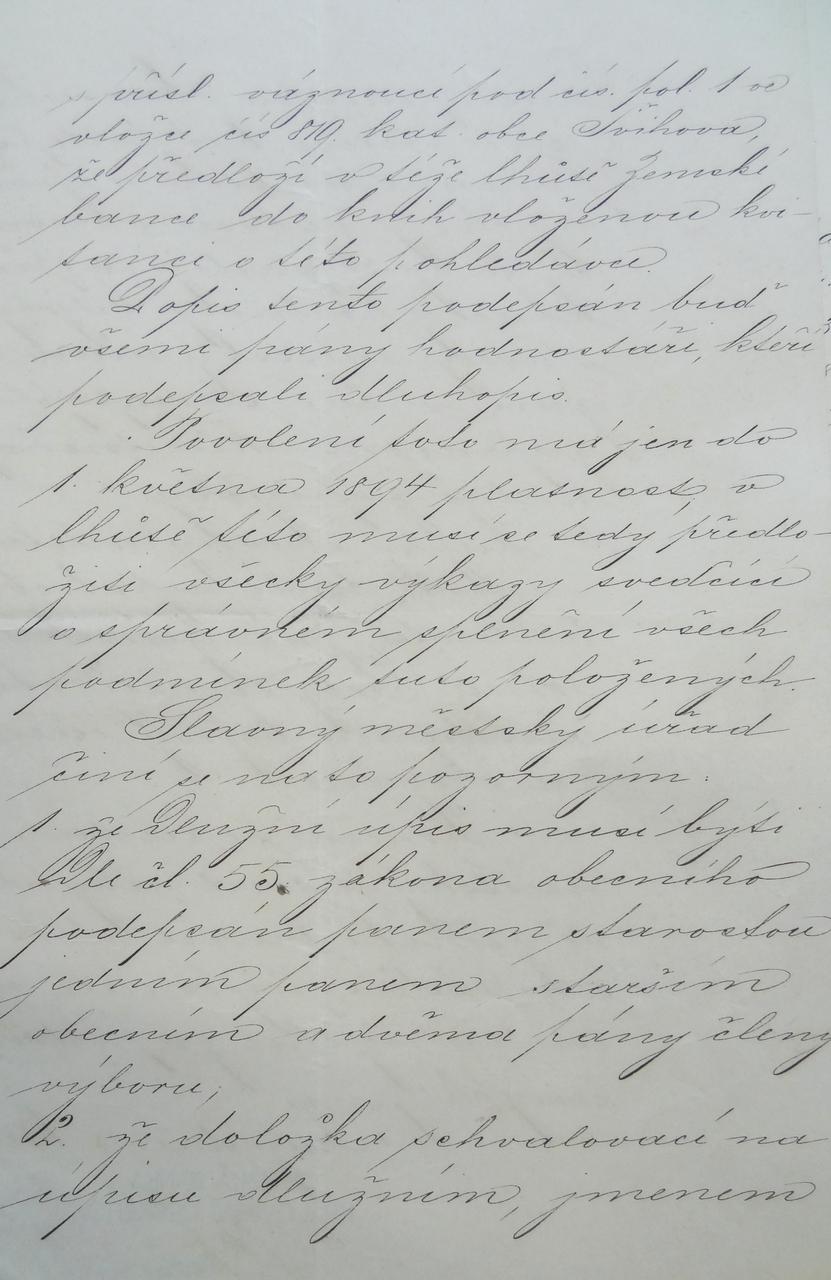 s přísl. váznoucí pod čís. pol. 1 ve
vložce čís 819. kat. obce Švihova,
že předloží v téže lhůtě Zemské
bance do knih vloženou kvi-
tanci o této pohledávce.
Dopis tento podepsán buď
všemi pány hodnostáři, kteří
podepsali dluhopis.
Povolení toto má jen do
1. května 1894 platnost, v
lhůtě této musí se tedy předlo-
žiti všecky výkazy svedčící
o správném splnění všech
podmínek tuto položených.
Slavný městský úřad
činí se na to pozorným:
1. že Dlužní úpis musí býti
Dle čl. 55. zákona obecního
podepsán panem starostou
jedním panem starším
obecním a dvěma pány členy
výboru;
2. že doložka schvalovací na
úpisu dlužním, jmenem